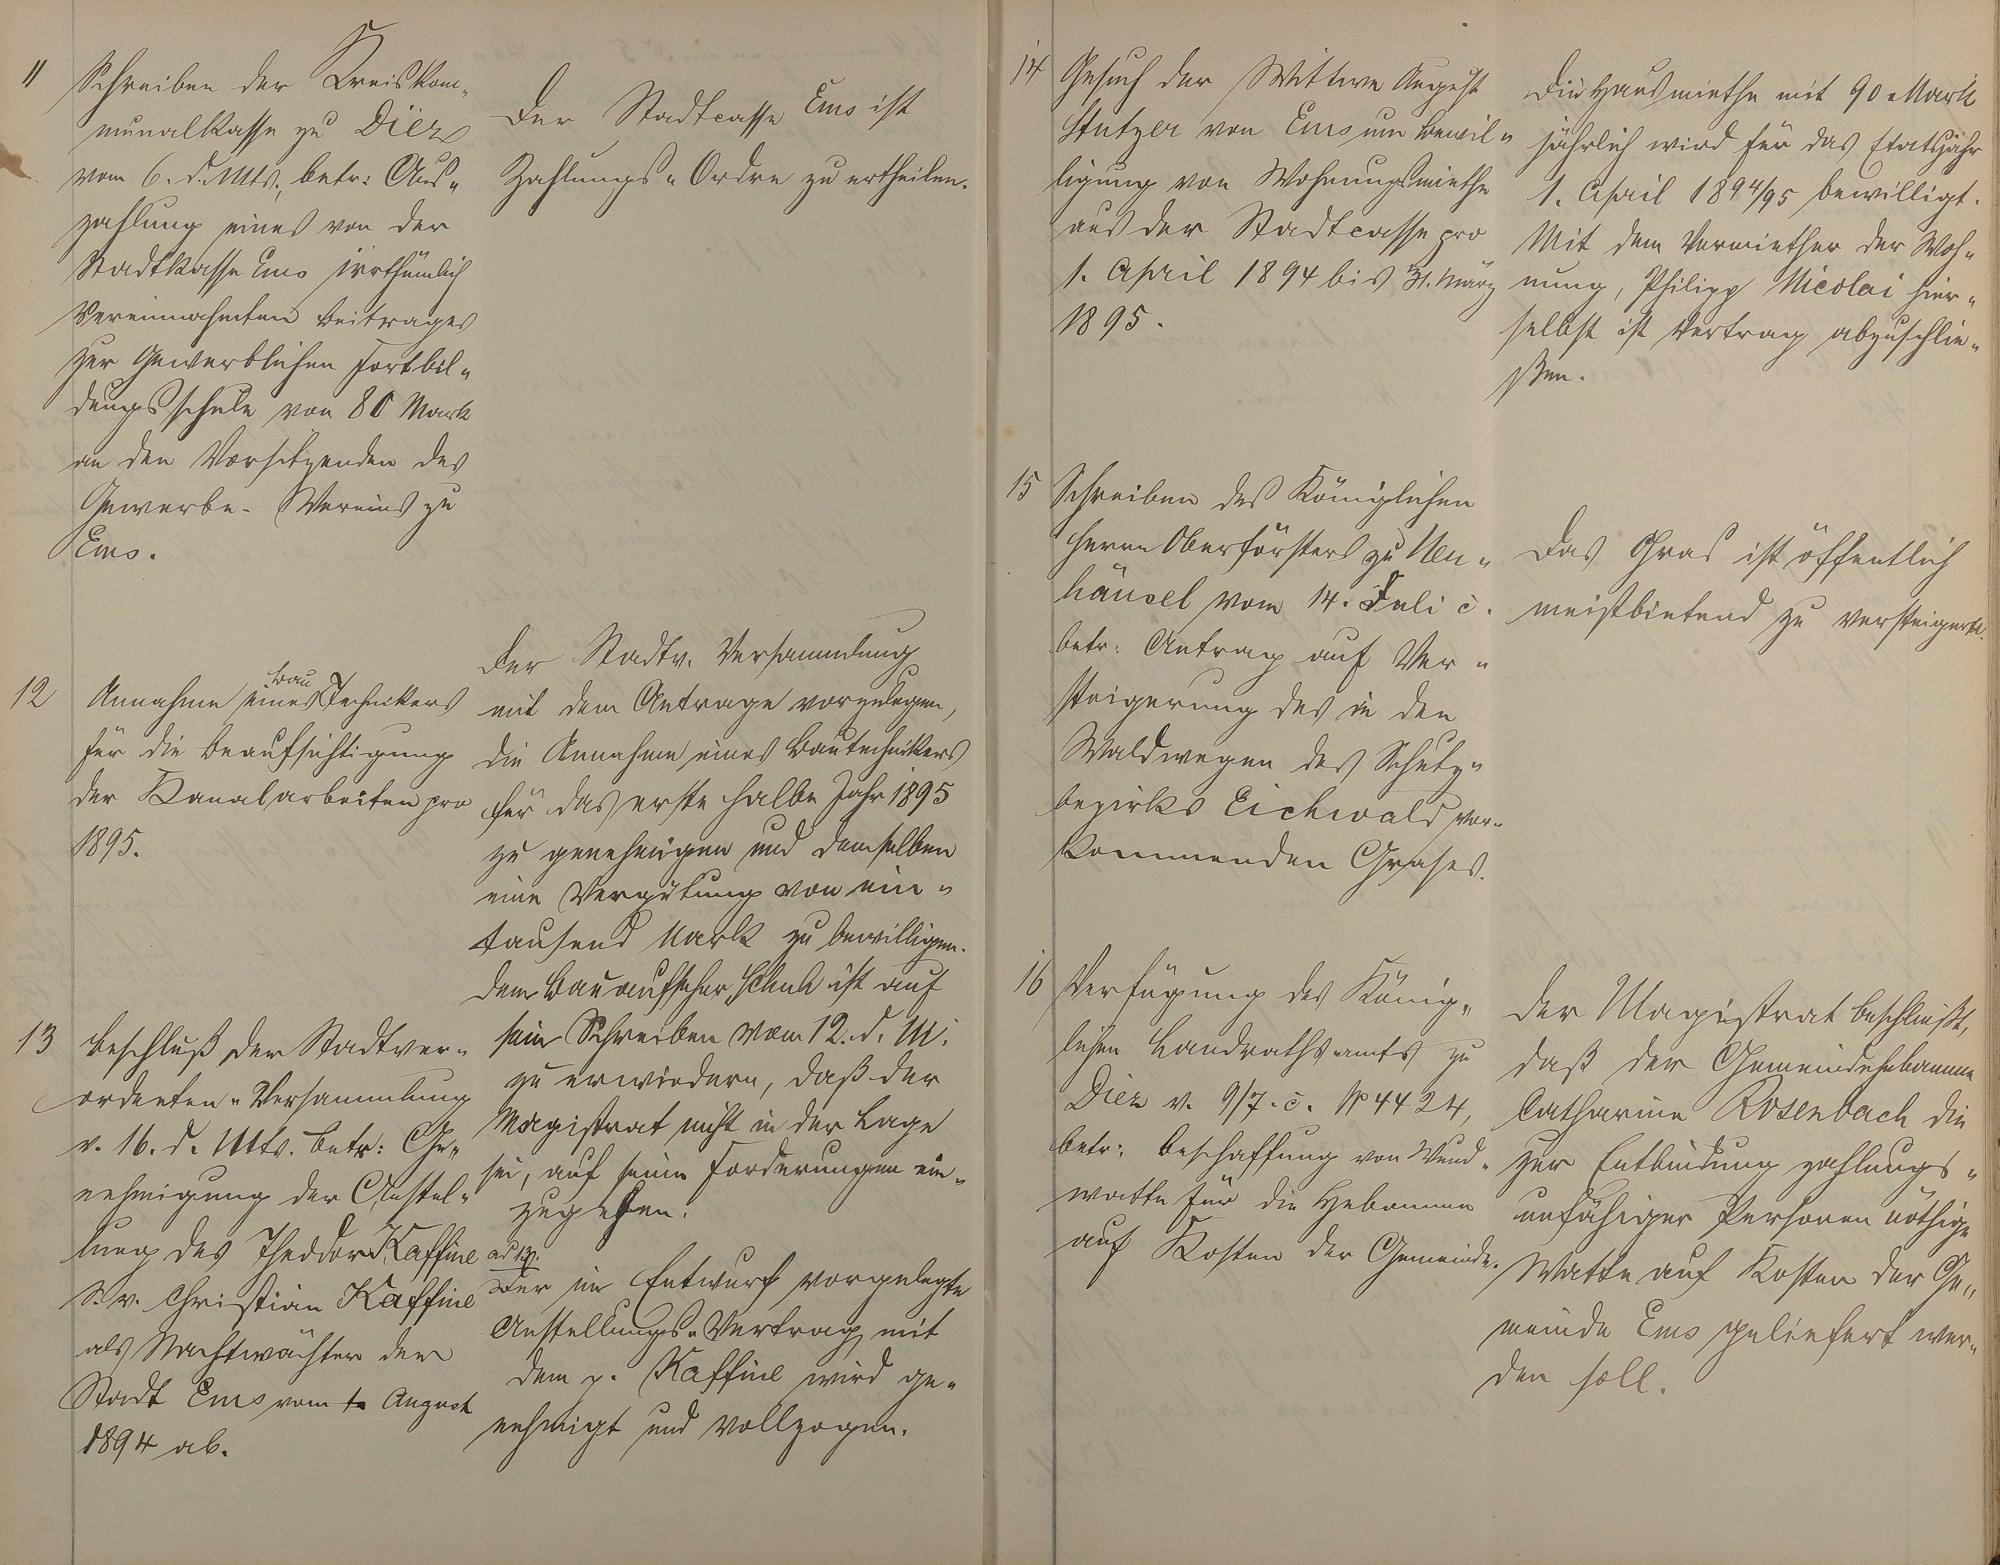 11
Schreiben der Kreiskom-
munalkasse zu Diez
vom 6. d. Mts., betr: Aus-
zahlung eines von der
Stadtkasse Ems irrthümlich
vereinnahmten Beitrages
zur Gewerblichen Fortbil-
dungsschule von 80 Mark
an den Vorsitzenden des
Gewerbe-Vereins zu
Ems.
Der Stadtcasse Ems ist
Zahlungs-Ordre zu ertheilen.
12
Annahme eines Bau Technikers
für die Beaufsichtigung
der Kanalarbeiten pro
1895.
Der Stadtv. Versammlung
mit dem Antrage vorzulegen,
die Annahme eines Bautechnikers
für das erste halbe Jahr 1895
zu genehmigen und demselben
eine Vergütung von ein-
tausend Mark zu bewilligen.
Dem Bauaufseher ist auf
sein Schreiben vom 12. d. M.
zu erwiedern, daß der
Magistrat nicht in der Lage
sei, auf seine Forderungen ein-
zugehen.
13
Beschluß der Stadtver-
ordneten-Versammlung
v. 16. d. Mts. betr: Ge-
nehmigung der Anstel-
lung des Theodor Kaffine
S. v. Christian Kaffine
als Nachtwächter der
Stadt Ems vom 1. August
1894 ab.
ad 13.
Der im Entwurf vorgelegte
Anstellungs-Vertrag mit
dem p. Kaffine wird ge-
nehmigt und vollzogen.
14
Gesuch der Wittwe August
Stutzer von Ems um Bewil-
ligung von Wohnungsmiethe
aus der Stadtcasse pro
1. April 1894 bis 31. März
1895.
Die Hausmiethe mit 90 Mark
jährlich wird für das Etatsjahr
1. April 1894/95 bewilligt.
Mit dem Vermiether der Woh-
nung, Philipp Nicolai hier-
selbst ist Vertrag abzuschlie-
ßen.
15
Schreiben des Königlichen
Herrn Oberförsters zu Neu-
häusel vom 14. Juli c.
betr: Antrag auf Ver-
steigerung des in den
Waldwegen des Schutz-
bezirks Eichwald vor-
kommenden Grases.
Das Gras ist öffentlich
meistbietend zu versteigern.
16
Verfügung des König-
lichen Landrathsamts zu
Diez v. 9/7. c. No 4424,
betr: Beschaffung von Wund-
watte für die Hebammen
auf Kosten der Gemeinde.
Der Magistrat beschließt,
daß der Gemeindehebamme
Catharine Rosenbach die
zur Entbindung zahlungs-
unfähiger Personen nöthige
Watte auf Kosten der Ge-
meinde Ems geliefert wer-
den soll.